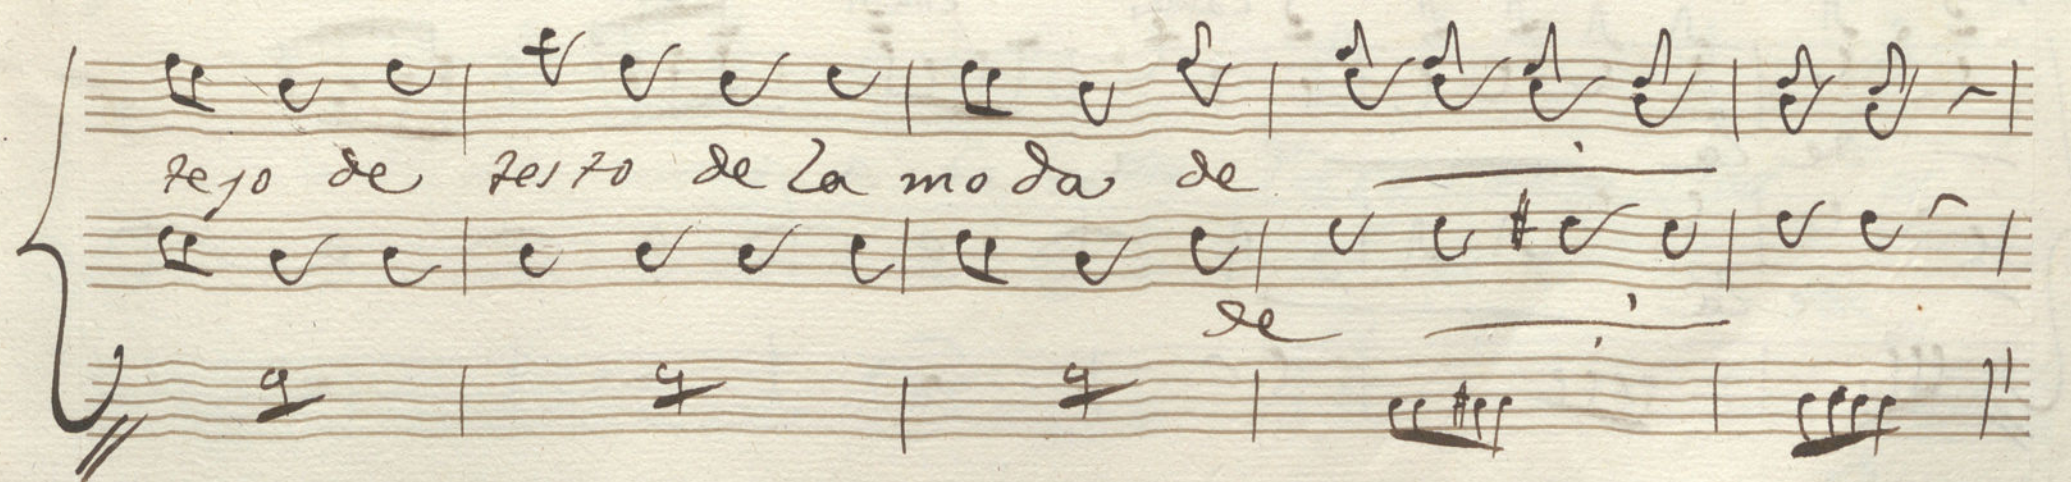 tejo de testo de la moda de
de